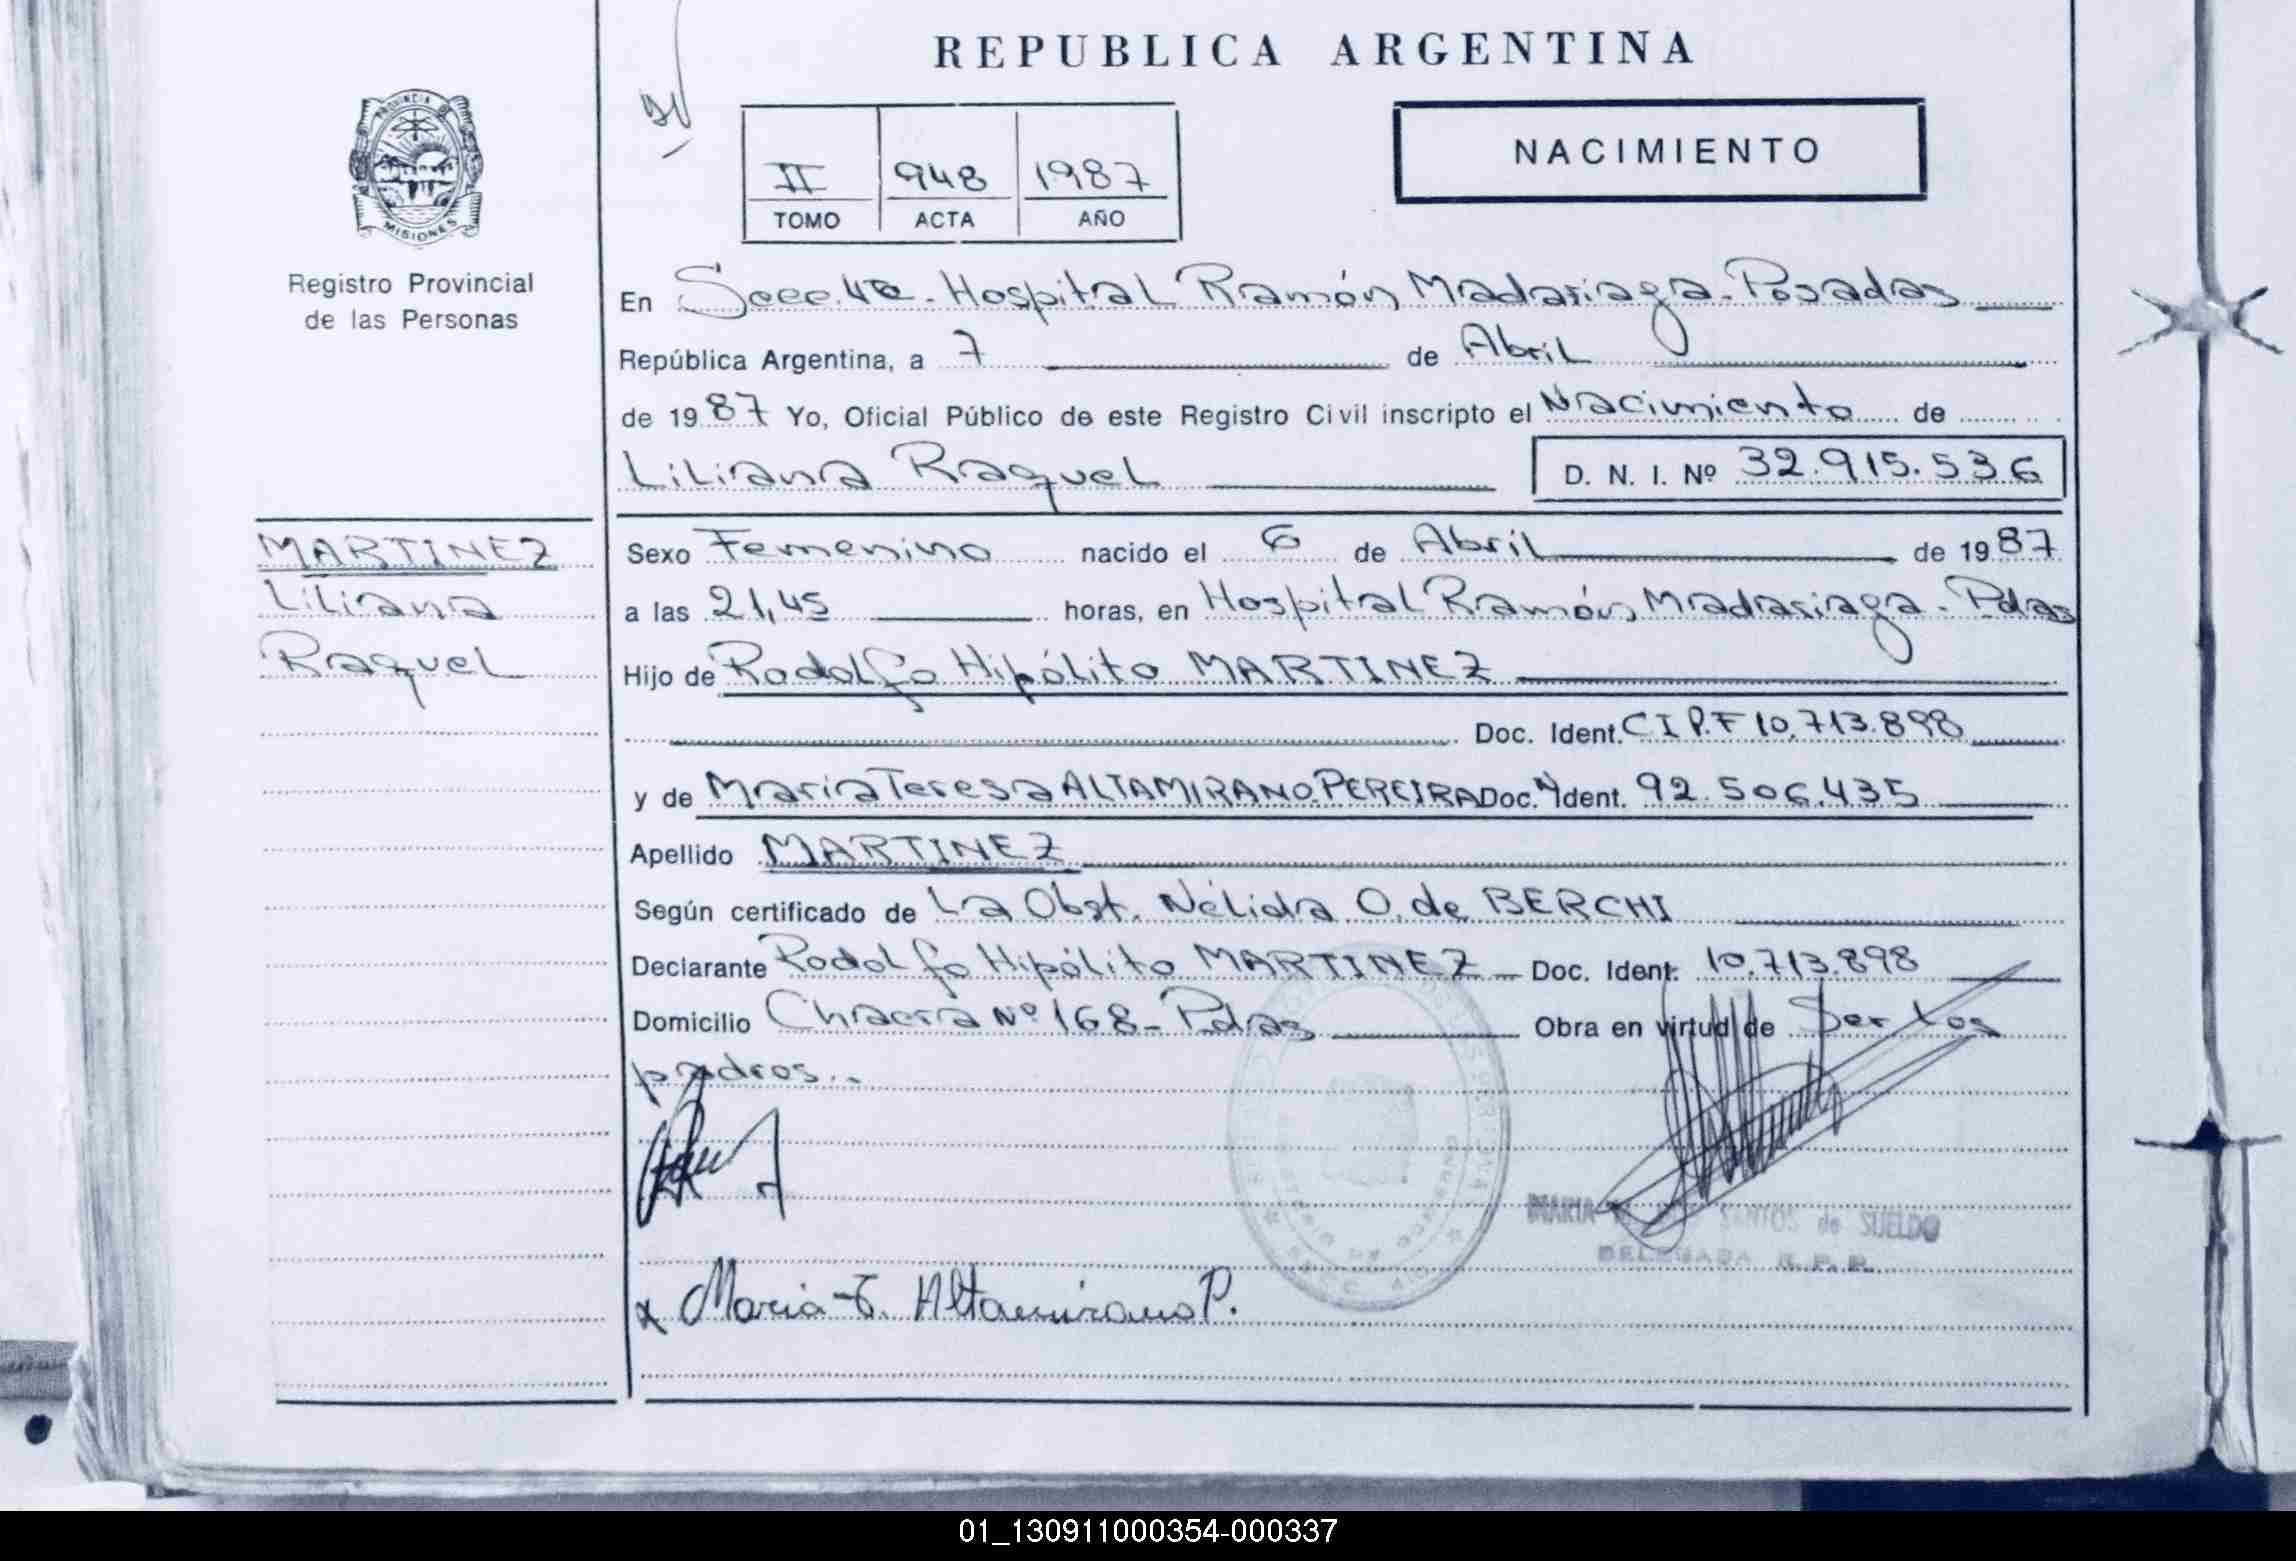 REPUBLICA ARGENTINA
PROVINCIA DE
MISIONES
Registro Provincial
de las Personas
II 948 1987
TOMO ACTA AÑO
NACIMIENTO
En Secc. 4ta. Hospital Ramón Madariaga. Posadas
República Argentina, a 7 de Abril
de 1987 Yo, Oficial Público de este Registro Civil inscripto el Nacimiento de
Liliana Raquel D. N. I. Nº 32.915.536
MARTINEZ
Liliana
Raquel
Sexo Femenino nacido el 6 de Abril de 1987
a las 21,45 horas, en Hospital Ramón Madariaga. Pdas
Hijo de Rodolfo Hipólito MARTINEZ
Doc. Ident. C I P.F 10.713.898
y de Maria Teresa ALTAMIRANO PEREIRA Doc. Ident. 92.506.435
Apellido MARTINEZ
Según certificado de La Obst. Nélida O. de BERCHI
Declarante Rodolfo Hipólito MARTINEZ Doc. Ident. 10.713.898
Domicilio Chacra Nº 168 - Pdas Obra en virtud de Ser los
padres..
MARIA SANTOS de SUELDO
DELEGADA R. P. P.
x Maria T. Altamirano P.
01_130911000354-000337